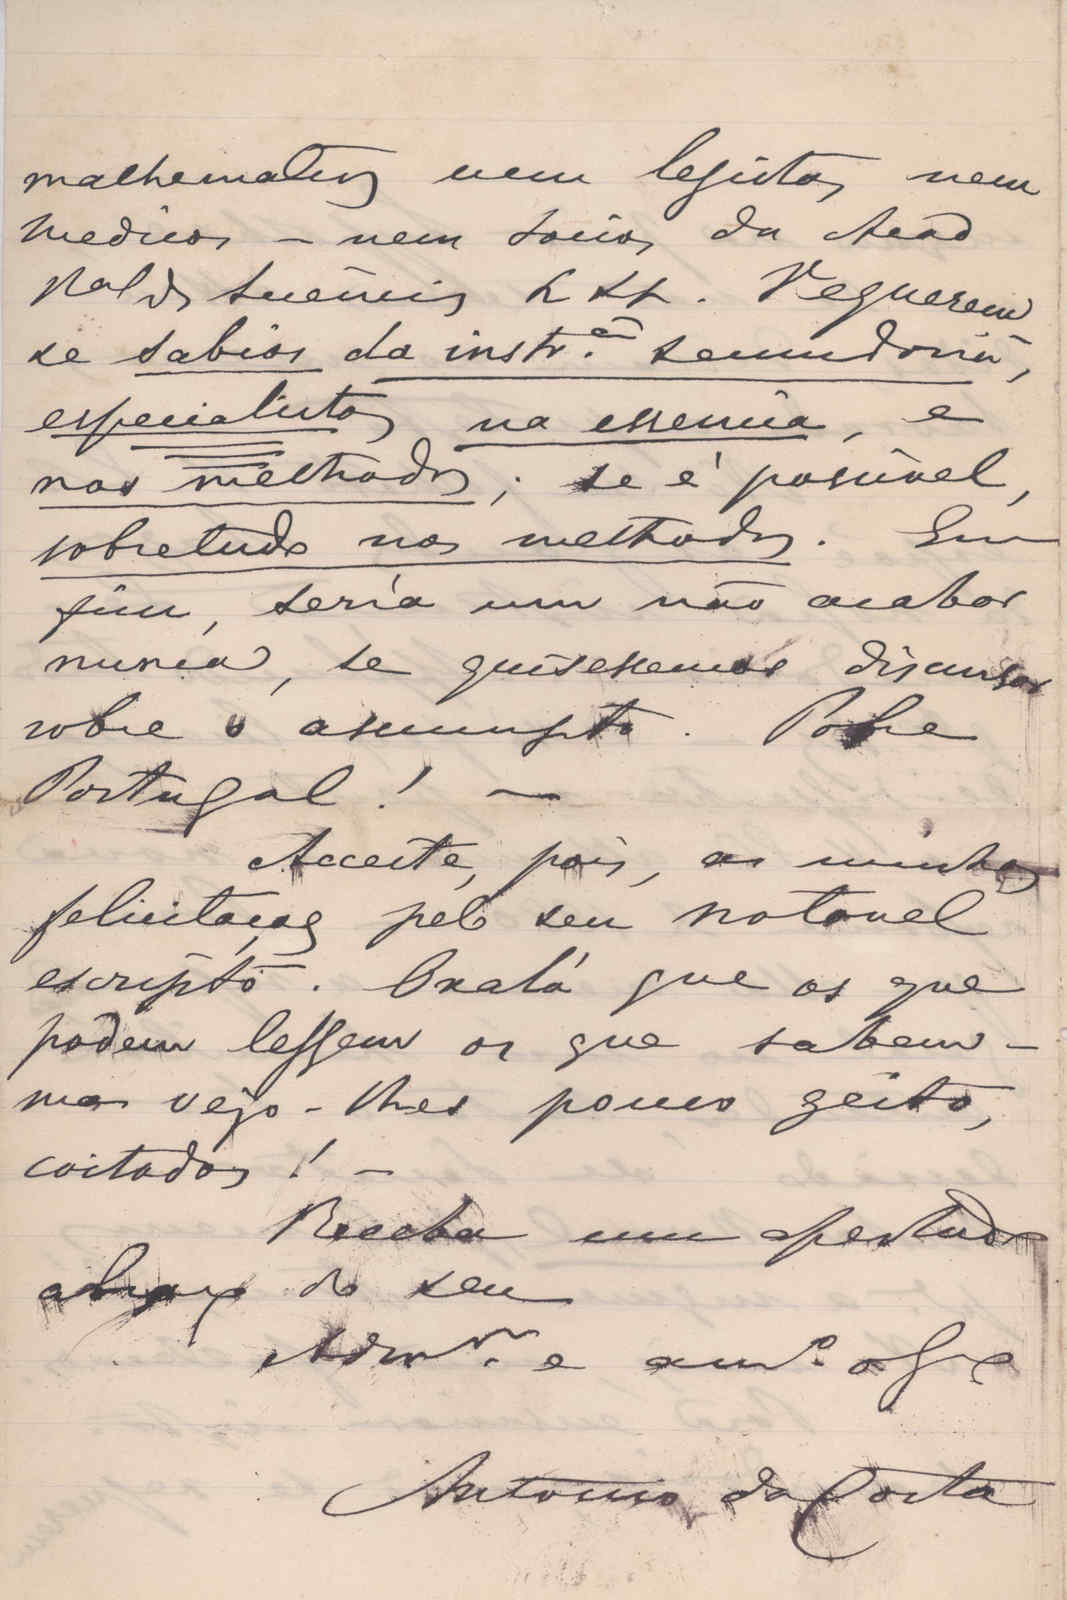 mathematicos nem legistas nem
medicos – nem socios da Acad
Real das Sciencias &. Requerem
se sabios da instr.ão secundaria,
especialistas na essencia, e
nos methodos; se é possivel,
sobretudo nos methodos. Em
fim, seria um não acabar
nunca, se quisessemos discursar
sobre o assumpto. Pobre
Portugal! –
Acceite, pois, as minhas
felicitações pelo seu notavel
escripto. Oxalá que os que
podem lessem os que sabem –
mas vejo-lhes pouco geito,
coitados! –
Receba um apertado
abraço do seu
Admr. e am.o obg.o
Antonio da Costa